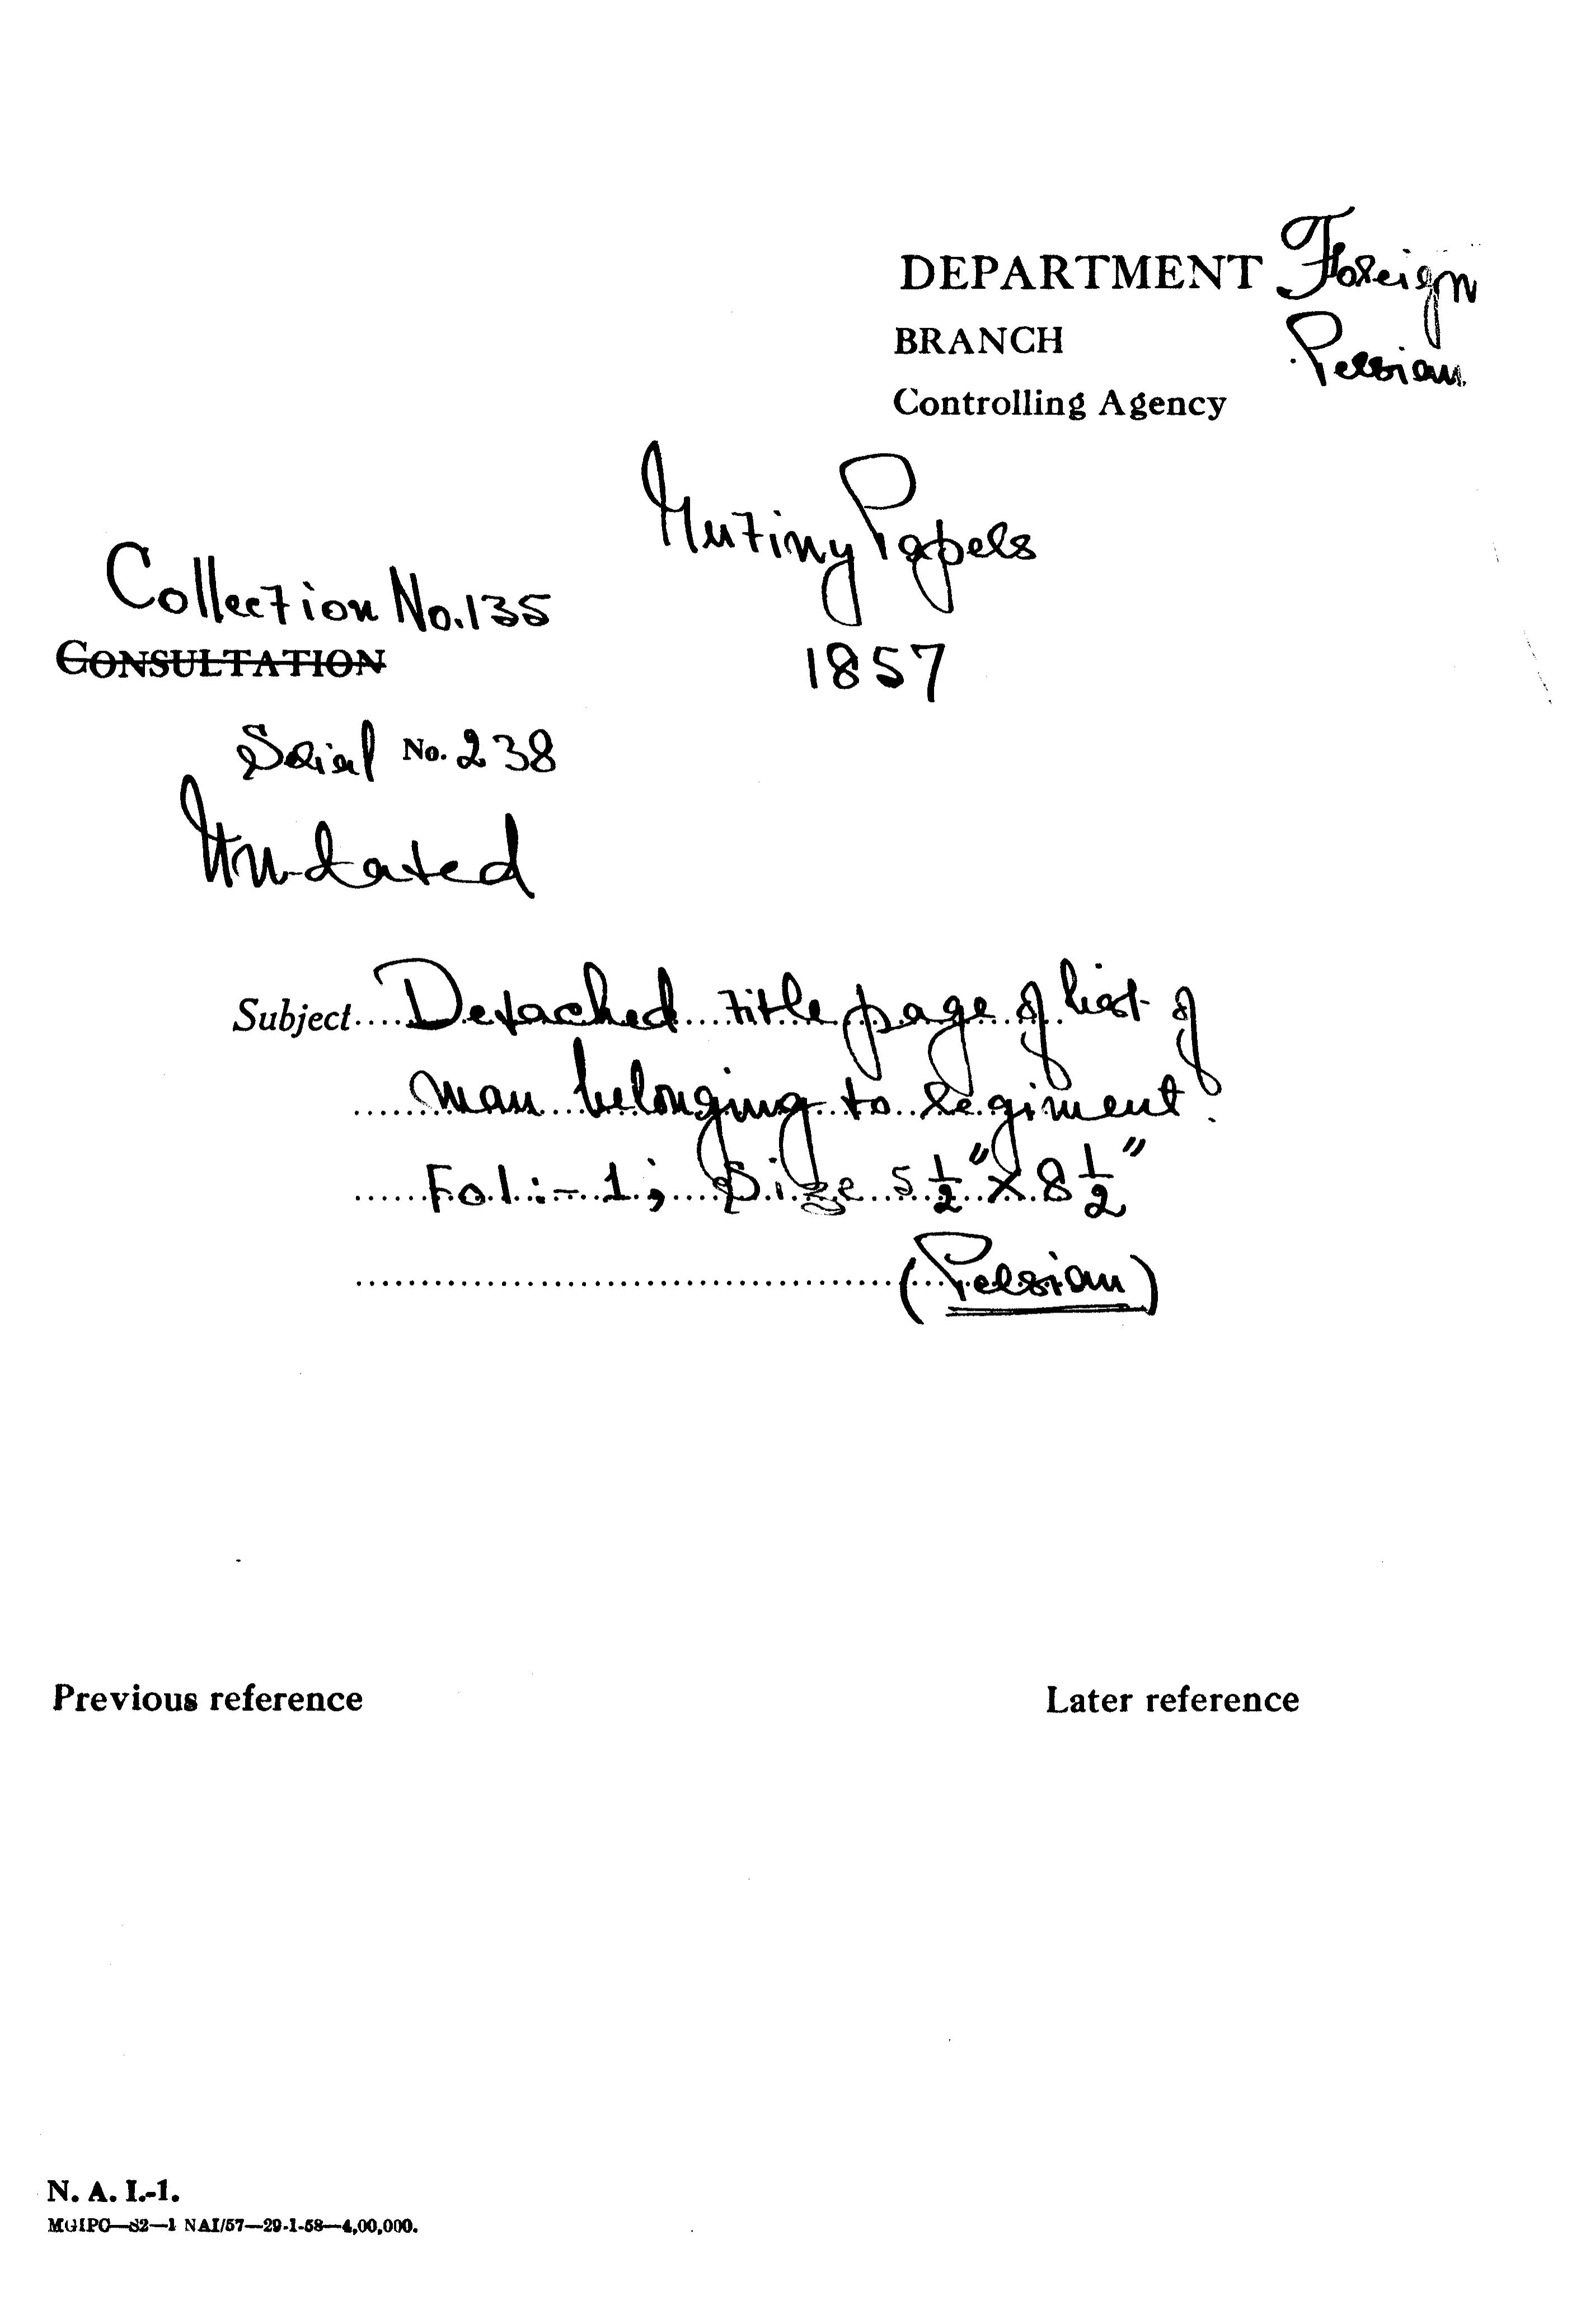 DEPARTMENT Foreign
BRANCH Persian
Controlling Agency
Mutiny Papers
1857
Collection No. 135
CONSULTATION
Serial No. 238
Un-dated
Subject....Detached title page of list of
man belonging to regiment.
Fol:- 1; Size 5 1/2" X 8 1/2"
(Persian)
Previous reference
Later reference
N. A. I.-1.
MGIPC—S2—1 NAI/57—29-1-58—4,00,000.